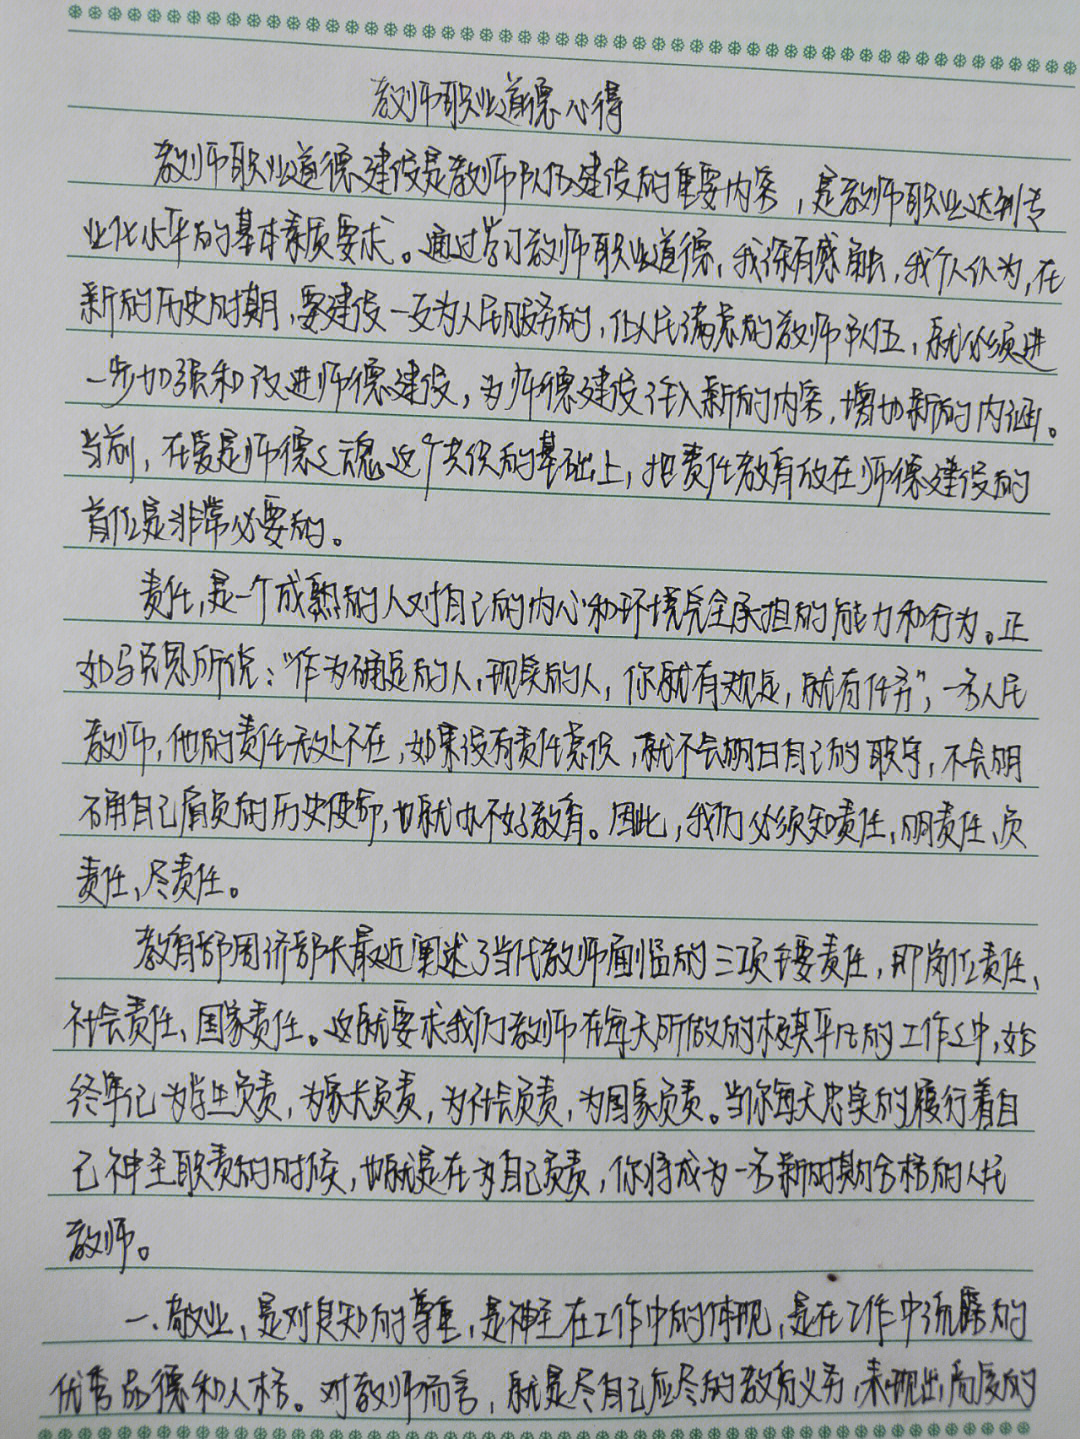 教师职业道德心得
教师职业道德建设是教师队伍建设的重要内容，是教师职业达到专
业化水平的基本素质要求。通过学习教师职业道德，我深有感触，我个人认为，在
新的历史时期，要建设一支为人民服务的，让人民满意的教师队伍，就必须进
一步加强和改进师德建设，为师德建设注入新的内容，增加新的内涵。
当前，在爱是师德之魂这个共识的基础上，把责任教育放在师德建设的
首位是非常必要的。
责任，是一个成熟的人对自己的内心和环境完全承担的能力和行为。正
如马克思所说：“作为确定的人，现实的人，你就有规定，就有任务”，一名人民
教师，他的责任无处不在，如果没有责任意识，就不会明白自己的职守，不会明
确自己肩负的历史使命，也就办不好教育。因此，我们必须知责任、明责任、负
责任、尽责任。
教育部周济部长最近阐述了当代教师面临的三项主要责任，即岗位责任、
社会责任、国家责任。这就要求我们教师在每天所做的极其平凡的工作之中，始
终牢记为学生负责，为家长负责，为社会负责，为国家负责。当你每天忠实的履行着自
己神圣职责的时候，也就是在为自己负责，你将成为一名新时期合格的人民
教师。
一、敬业，是对良知的尊重，是神圣在工作中的体现，是在工作中流露的
优秀品德和人格。对教师而言，就是尽自己应尽的教育义务，表现出高度的